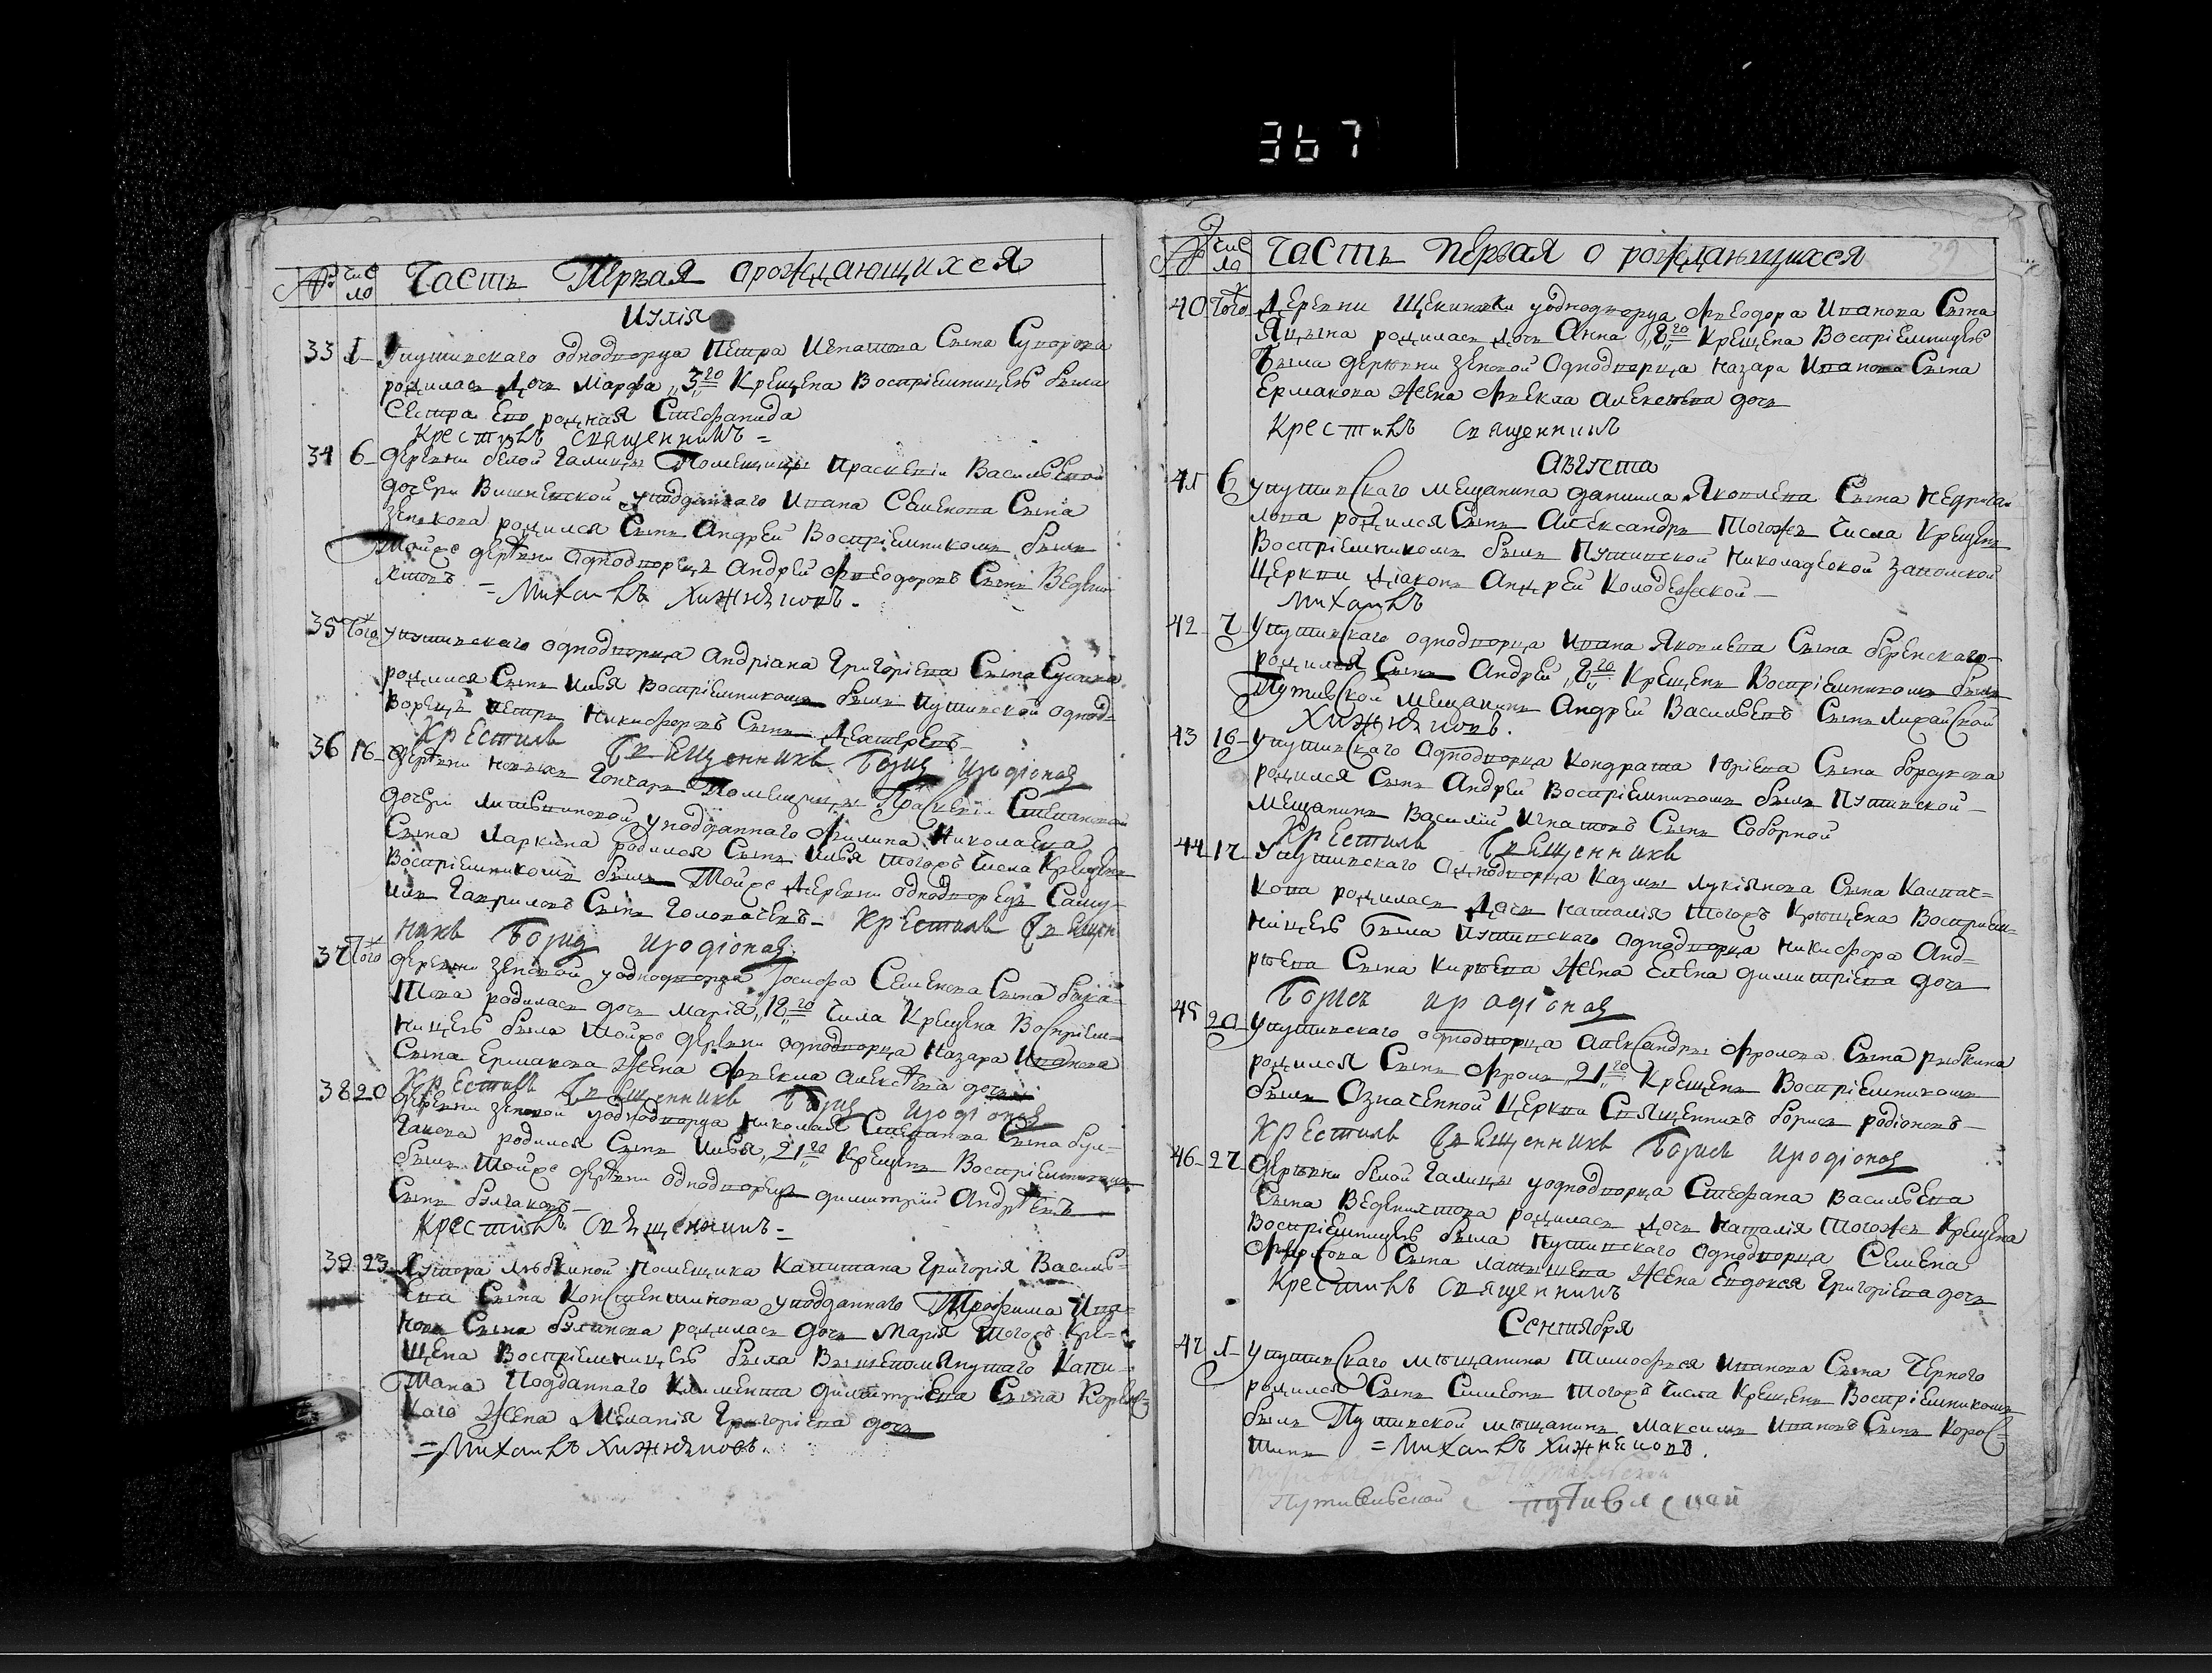 367
№ чис ло Часть Первая о рождающихся
Иулія
33 1 Упутивскаго однодворца Петра Игнатова Сына Суворова
родилась Дочь Марфа „3го Крещена Воспріемницею была
Сестра Ево родная Стефанида
Крестилъ священникъ =
34 6 деревни белой Галицы Помещицы Праскевіи Васильевой
дочери Вишневской уподданнаго Ивана Семенова Сына
Зенкова родился Сынъ Андрей Воспріемникомъ былъ
Тойже деревни однодворецъ Андрей Феодоровъ Сынъ Ведени
ктовъ = Михаилъ Хижняковъ.
35 Того упутивскаго однодворца Андріана Григоріева Сына
родился Сынъ Илья Воспріемникомъ былъ Путивской однод-
ворецъ Петръ Никифоровъ Сынъ Дехтеревъ
Крестилъ Священникъ Борисъ Иродіоновъ
36 16 деревни новыхъ Гончаръ Помещицы Праскевіи Степановой
дочери Литвиновой уподданнаго Филипа Николаева
Сына Ларкина родился Сынъ Илья тогожъ Числа Крещенъ
Воспріемникомъ былъ Тойже Деревни однодворецъ Саму-
илъ Гавриловъ Сынъ Головачевъ Крестилъ Священ
никъ Борисъ Иродіоновъ
37 Того деревни Зеновой уоднодворца Іосифа Семенова Сына Бука-
това родилась дочь Марія „18го Числа Крещена Воспріем-
ницею была тойже деревни однодворца Назара Иванова
Сына Ермакова Жена Фекла Алексѣева дочь
Крестилъ Священникъ Борисъ Иродіоновъ
38 20 деревни Зеновой уоднодворца Николая Степанова Сына Бул-
гакова родился Сынъ Илья „21го Крещенъ Воспріемникомъ
былъ Тойже деревни однодворецъ димитрій Андрѣевъ
Сынъ Булгаковъ
Крестилъ Священникъ =
39 23 Хутора Любкиной Помещика Капитана Григорія Василь-
ева Сына Константинова уподданнаго Трофима Ива-
нова Сына родилась дочь Марія тогожъ Кре-
щена Воспріемницею была Вышепомянутаго Капи-
тана Подданнаго Климента димитріева Сына
каго Жена Меланія Григоріева дочь
= Михаилъ Хижняковъ.
№ чис ло Часть первая о рождающихся 39
40 Того Деревни Щекинки уоднодворца Феодора Иванова Сына
Яцына родилась Дочь Анна „8го Крещена Воспріемницею
была деревни Зеновой Однодворца Назара Иванова Сына
Ермакова Жена Фекла Алексѣева дочь
Крестилъ Священникъ
Августа
41 6 упутивскаго мещанина даниила Яковлева Сына Недри
лова родился Сынъ Александръ Тогожъ Числа Крещенъ
Воспріемникомъ былъ Путивской Николаевской
церкви діаконъ Андрей Колодежской
Михаилъ
42 7 Упутивскаго однодворца Ивана Яковлева Сына Беренскаго
родился Сынъ Андрей „8го Крещенъ Воспріемникомъ былъ
Путивской мещанинъ Андрей Васильевъ Сынъ Лихайской
Хижняковъ.
43 16 Упутивскаго Однодворца Кондрата Юріева Сына Борсукова
родился Сынъ Андрей Воспріемникомъ былъ Путивской
мещанинъ Василій Игнатовъ Сынъ Соборной
Крестилъ Священникъ
44 17 Упутивскаго Однодворца Казмы Лукіянова Сына Калпач-
кова родилась Дочь Наталія тогожъ Крещена Воспріем-
ницею была Путивскаго однодворца Никифора Анд-
рѣева Сына Кирѣева Жена Елена димитріева дочь
Борисъ Иродіоновъ
45 20 Упутивскаго однодворца Александры Фролова Сына Рыбкина
родился Сынъ Фролъ „21го Крещенъ Воспріемникомъ
былъ Означенной Церкви Священникъ Борисъ Родіоновъ
Крестилъ Священникъ Борисъ Иродіоновъ
46 27 Деревни белой Галицы уоднодворца Стефана Васильева
Сына Веденихтова родилась дочь Наталія тогожъ Крещена
Воспріемницею была Путивскаго Однодворца Семена
Фирсова Сына Латышева Жена Евдокея Григоріева дочь
Крестилъ Священникъ
Сентября
47 1 упутивскаго мѣщанина Тимофея Иванова Сына Черного
родился Сынъ Симеонъ тогожъ Числа Крещенъ Воспріемникомъ
былъ Путивской мѣщанинъ Максимъ Ивановъ Сынъ Корос-
тинъ = Михаилъ Хижняковъ.
Путивльской